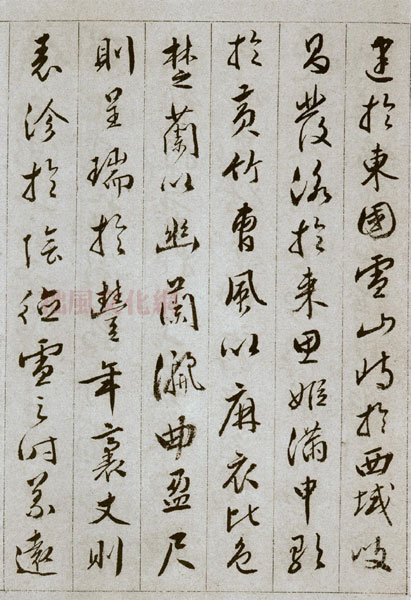 建於東國雪山峙於西域岐
昌發詠於來思姬滿申歌
於黃竹曹風以麻衣比色
楚蘭以幽蘭儷曲盈尺
則呈瑞於豐年袤丈則
表沴於陰德雪之時義遠